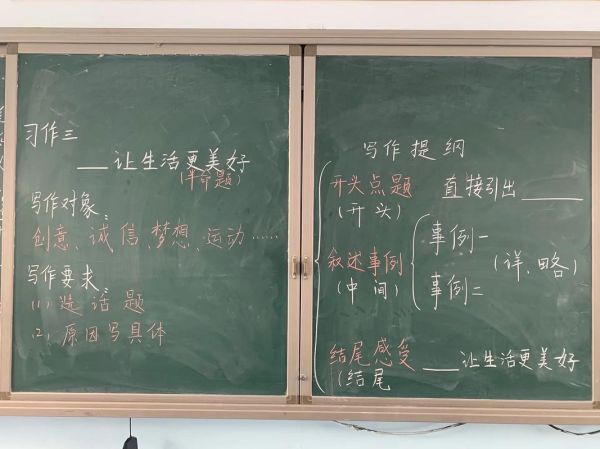 习作三
___让生活更美好
(半命题)
写作对象:
创意、诚信、梦想、运动……
写作要求:
(1)选话题
(2)原因写具体
写作提纲
开头点题 直接引出____
(开头)
叙述事例
(中间)
事例一
事例二
(详、略)
结尾感受 ___让生活更美好
(结尾